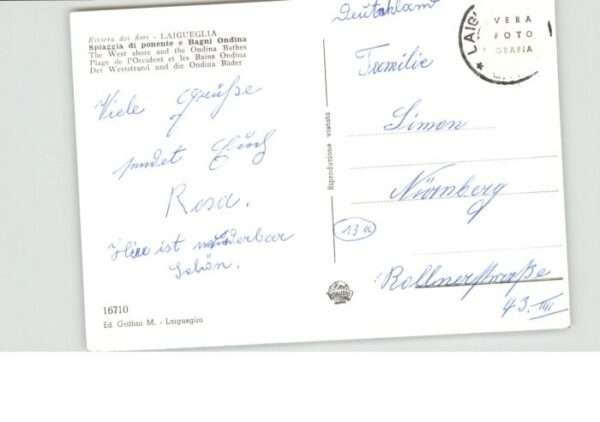 Riviera dei fiori - LAIGUEGLIA
Spiaggia di ponente e Bagni Ondina
The West shore and the Ondina Bathes
Plage de l'Occident et les Bains Ondina
Der Weststrand und die Ondina Bäder
Viele Grüße
sendet Euch
Rosa.
Hier ist wunderbar
Schön.
16710
Ed. Gollau M. - Laigueglia
Riproduzione vietata
Deutschland
VERA
FOTO
GRAFIA
Familie
Simon
Nürnberg
13a
Rollnerstraße
43. III